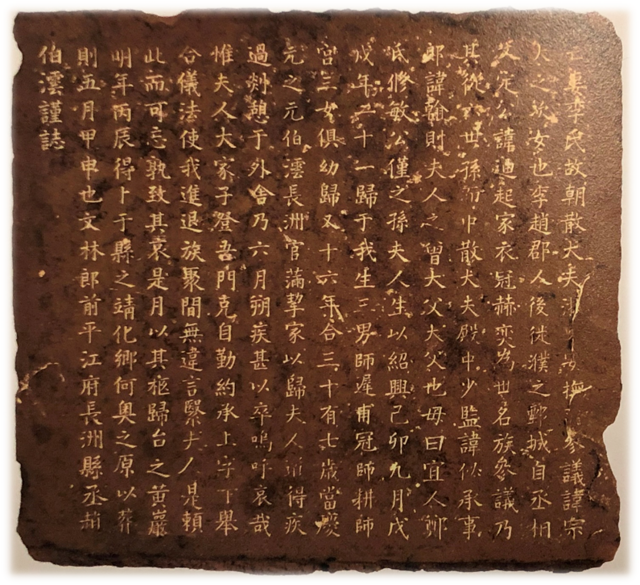 妻李氏故朝散大夫撫參議諱宗
大之女汝也李趙郡人後徙濮之鄄城自丞相
文定公諱迪起家衣冠赫奕為世名族參議乃
其從六世孫而中散大夫中少監諱似承事
郎諱翰則夫人之曾大父大父也母曰宜人鄭
氏修敏公僅之孫夫人生以紹興己卯九月戊
戌年二十一歸于我生三男師遲甫冠師耕師
宮三女俱幼歸又十六年合三十有七歲當慶
元之元伯澐長洲官滿挈家以歸夫人道得疾
過剡憩于外舍乃六月朔疾甚以卒嗚呼哀哉
惟夫人大家子登吾門克自勤約承上字下舉
合儀法使我進退族聚間無違言繄夫人是賴
此而可忘孰致其哀是月以其柩歸台之黃巖
明年丙辰得卜于縣之靖化鄉何奧之原以葬
則五月甲申也文林郎前平江府長洲縣丞趙
伯澐謹誌